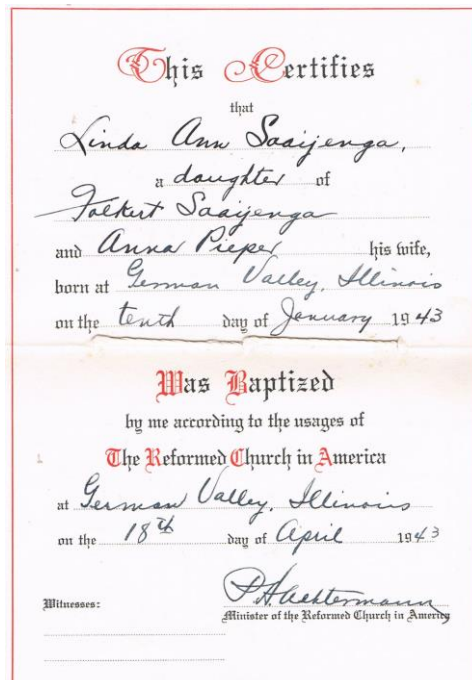 This Certifies
that
Linda Ann Saaijenga,
a daughter of
Folkert Saaijenga
and Anna Pieper his wife,
born at German Valley, Illinois
on the tenth day of January 1943
Was Baptized
by me according to the usages of
The Reformed Church in America
at German Valley, Illinois
on the 18th day of April 1943
P. H. Achtermann
Witnesses:
Minister of the Reformed Church in America